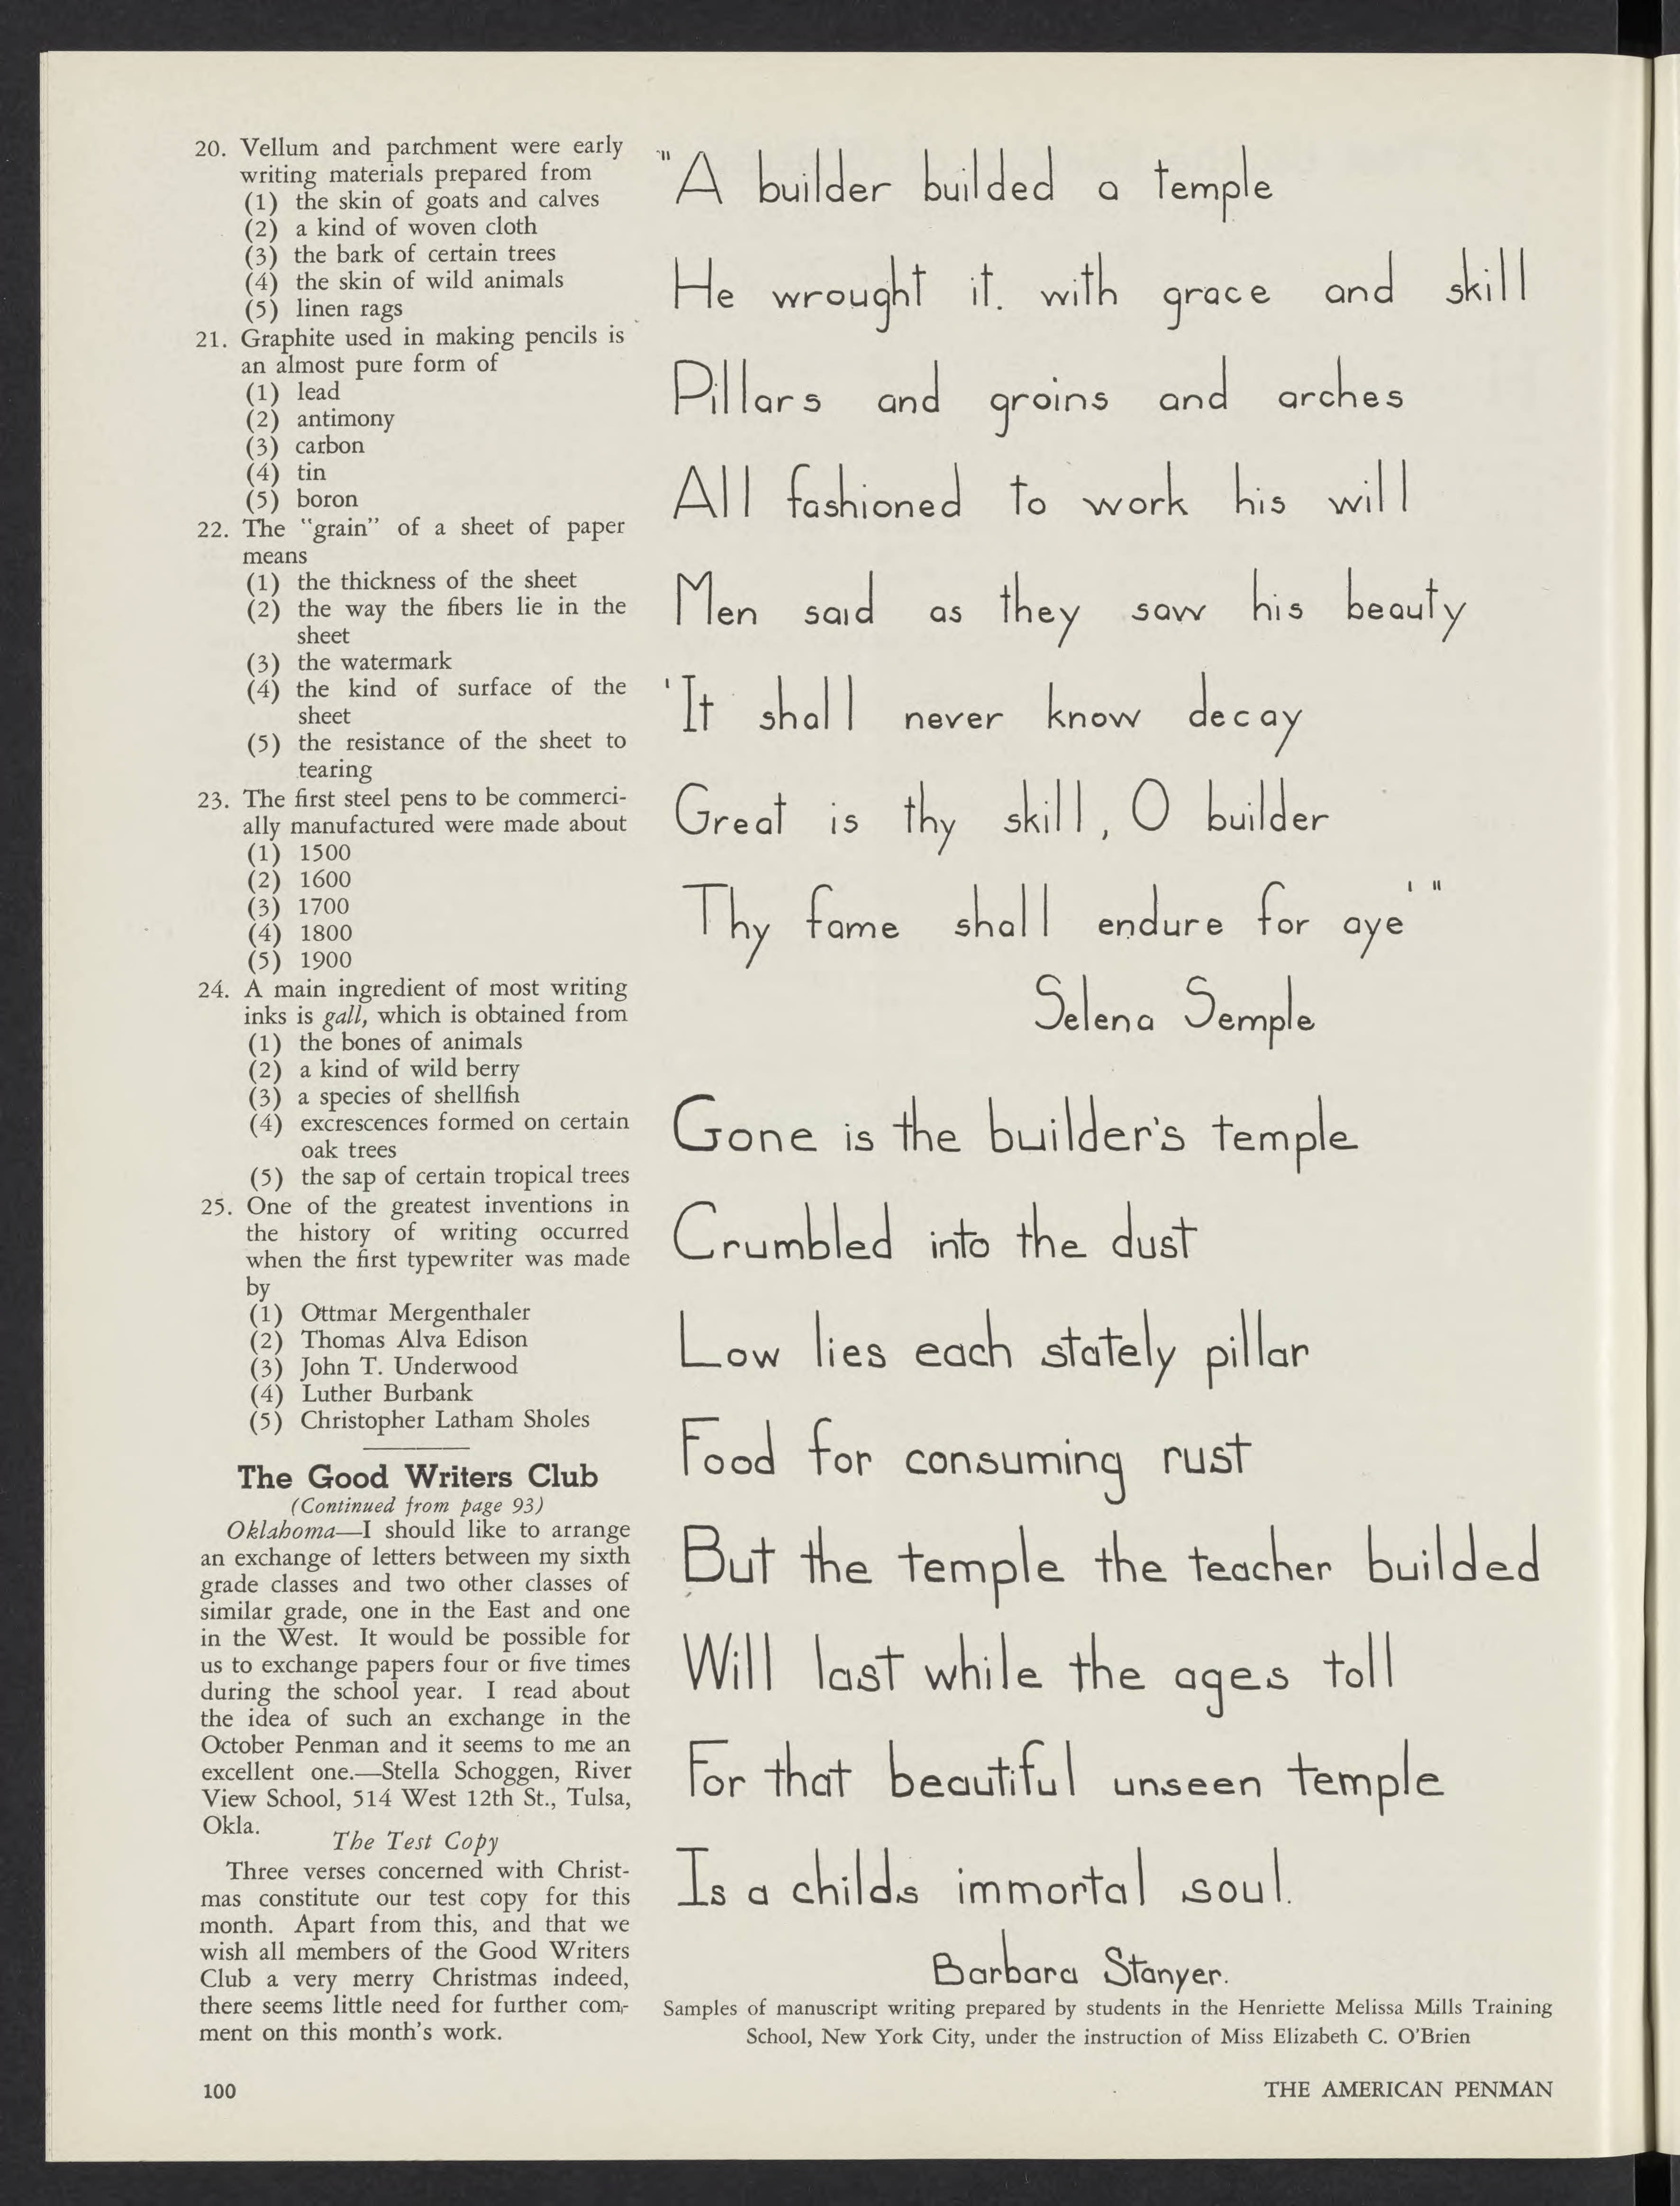 20. Vellum and parchment were early
writing materials prepared from
(1) the skin of goats and calves
(2) a kind of woven cloth
(3) the bark of certain trees
(4) the skin of wild animals
(5) linen rags
21. Graphite used in making pencils is
an almost pure form of
(1) lead
(2) antimony
(3) carbon
(4) tin
(5) boron
22. The "grain" of a sheet of paper
means
(1) the thickness of the sheet
(2) the way the fibers lie in the
sheet
(3) the watermark
(4) the kind of surface of the
sheet
(5) the resistance of the sheet to
tearing
23. The first steel pens to be commerci-
ally manufactured were made about
(1) 1500
(2) 1600
(3) 1700
(4) 1800
(5) 1900
24. A main ingredient of most writing
inks is gall, which is obtained from
(1) the bones of animals
(2) a kind of wild berry
(3) a species of shellfish
(4) excrescences formed on certain
oak trees
(5) the sap of certain tropical trees
25. One of the greatest inventions in
the history of writing occurred
when the first typewriter was made
by
(1) Ottmar Mergenthaler
(2) Thomas Alva Edison
(3) John T. Underwood
(4) Luther Burbank
(5) Christopher Latham Sholes
The Good Writers Club
(Continued from page 93)
Oklahoma—I should like to arrange
an exchange of letters between my sixth
grade classes and two other classes of
similar grade, one in the East and one
in the West. It would be possible for
us to exchange papers four or five times
during the school year. I read about
the idea of such an exchange in the
October Penman and it seems to me an
excellent one.—Stella Schoggen, River
View School, 514 West 12th St., Tulsa,
Okla.
The Test Copy
Three verses concerned with Christ-
mas constitute our test copy for this
month. Apart from this, and that we
wish all members of the Good Writers
Club a very merry Christmas indeed,
there seems little need for further com-
ment on this month's work.
"A builder builded a temple
He wrought it. with grace and skill
Pillars and groins and arches
All fashioned to work his will
Men said as they saw his beauty
'It shall never know decay
Great is thy skill, O builder
Thy fame shall endure for aye' "
Selena Semple
Gone is the builder's temple
Crumbled into the dust
Low lies each stately pillar
Food for consuming rust
But the temple the teacher builded
Will last while the ages toll
For that beautiful unseen temple
Is a childs immortal soul.
Barbara Stanyer.
Samples of manuscript writing prepared by students in the Henriette Melissa Mills Training
School, New York City, under the instruction of Miss Elizabeth C. O'Brien
100
THE AMERICAN PENMAN